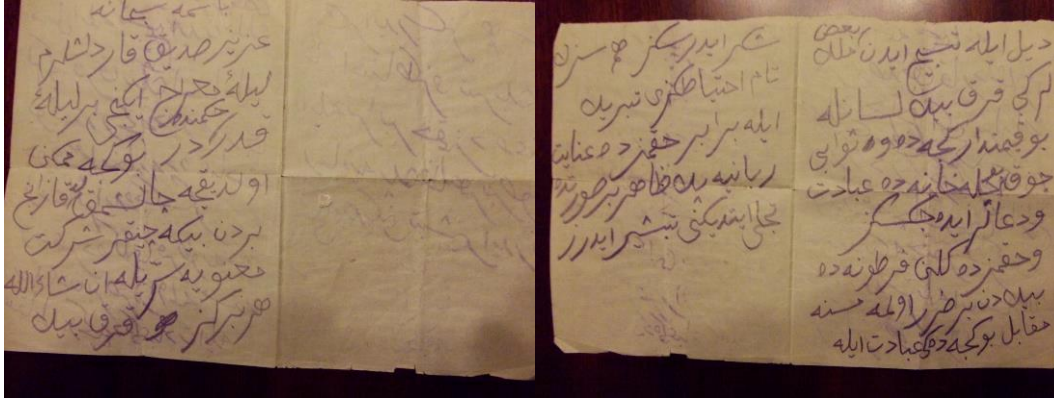 باسمه سبحانه
عزيز صديق قارداشلرم
ليلۀ معراج ايكنجى بر ليلۀ
قدردر بو كيجه ممكن
اولديقجه چاليشمقله قازانج
بردن بيكه چيقار شركت
معنويه سريله ان شاءالله
هر بركز قرق بيڭ
ديل ايله تسبيح ايدن بعض ملك
لر كبى قرق بيڭ لسانله
بو قيمتدار كيجه ده و ثوابى
چوق بو چله خانه ده عبادت
و دعالر ايده جكسكز
و حقمزده كلن فرطونه ده
بيڭ دن بر ضرر اولمه مسنه
مقابل بو كيجه ده كى عبادت ايله
شكر ايدرسكز هم سزڭ
تام احتياطكزى تبريك
ايله برابر حقمزده عنايت
ربانيه پك ظاهر بر صورتده
تجلى ايتديكنى تبشير ايدرز